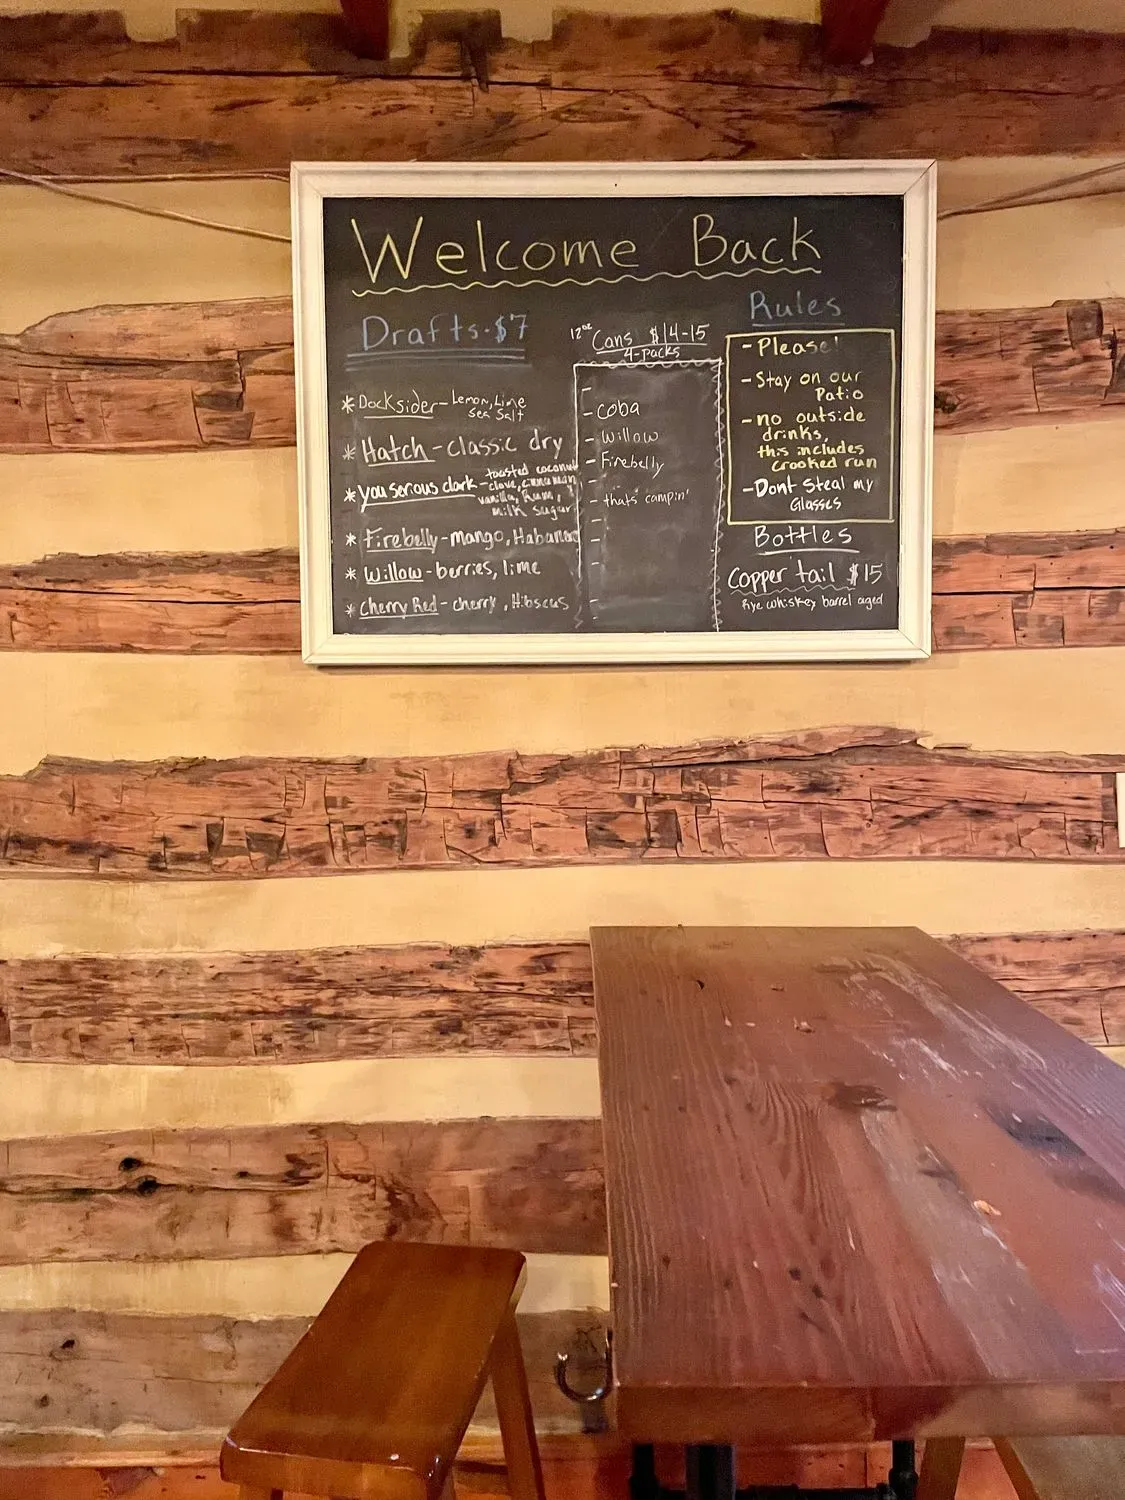 Welcome Back
Drafts-$7
* Docksider - Lemon, Lime
Sea Salt
* Hatch - classic dry
* you serious clark - toasted coconut
clove, cinnaman
vanilla, Rum,
milk sugar
* Firebelly - mango, Habanero
* Willow - berries, lime
* Cherry Red - cherry, Hibscus
12oz Cans $14-15
4-packs
-
- Coba
- Willow
- Firebelly
-
- thats campin'
-
-
-
Rules
- Please!
- Stay on our
Patio
- no outside
drinks,
this includes
Crooked run
- Dont Steal my
Glasses
Bottles
Copper tail $15
Rye whiskey barrel aged